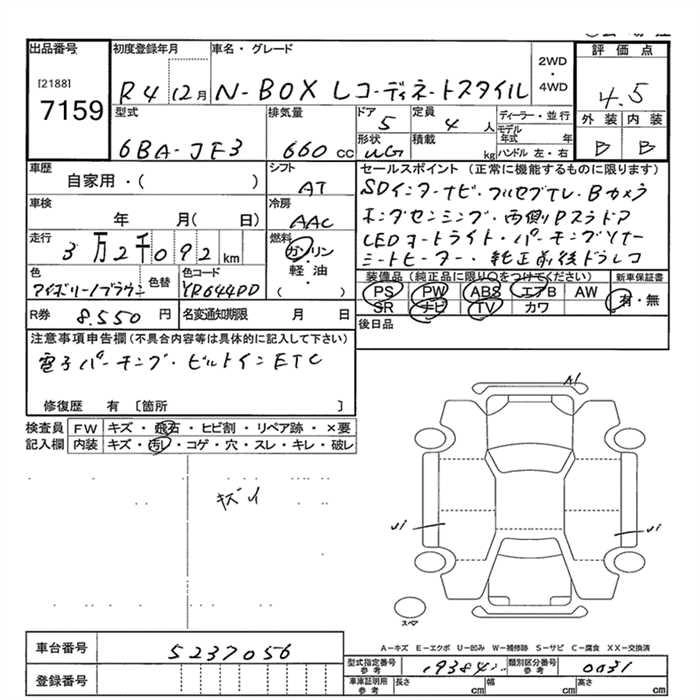 出品番号 初度登録年月 車名・グレード 2WD・4WD 評価点
[2188]
7159
R4 12月 N-BOX Lコーディネートスタイル 4.5
型式 排気量 ドア 定員 ディーラー・並行 外装 内装
6BA-JF3 660cc 5 4人 モデル年式 年 B B
形状 積載 kg ハンドル 左・右
WG
車歴 シフト セールスポイント(正常に機能するものに限ります)
自家用・( ) AT SDインターナビ・フルセグTV・Bカメラ
車検 冷房 ホンダセンシング・両側Pスラドア
年 月( 日) AAC LEDオートライト・パーキングソナー
走行 燃料 シートヒーター・純正前後ドラレコ
3万2千092km ガソリン・軽油・( )
装備品(純正品に限り○をつけてください) 新車保証書
色 色替 色コード PS PW ABS エアB AW 有・無
アイボリー/ブラウン YR644PD SR ナビ TV カワ
R券 8.550円 名変通知期限 月 日 後日品
注意事項申告欄(不具合内容等は具体的に記入して下さい)
電子パーキング・ビルトインETC
修復歴 有 〔箇所 〕
検査員記入欄 FW キズ・飛石・ヒビ割・リペア跡・×要
内装 キズ・汚レ・コゲ・穴・スレ・キレ・破レ
キズイ
A1
U1 U1
スペア
A-キズ E-エクボ U-凹み W-補修跡 S-サビ C-腐食 XX-交換済
車台番号 5237056
型式指定番号 参考 19384 類別区分番号 参考 0031
登録番号 車庫証明用 参考 長さ cm 幅 cm 高さ cm